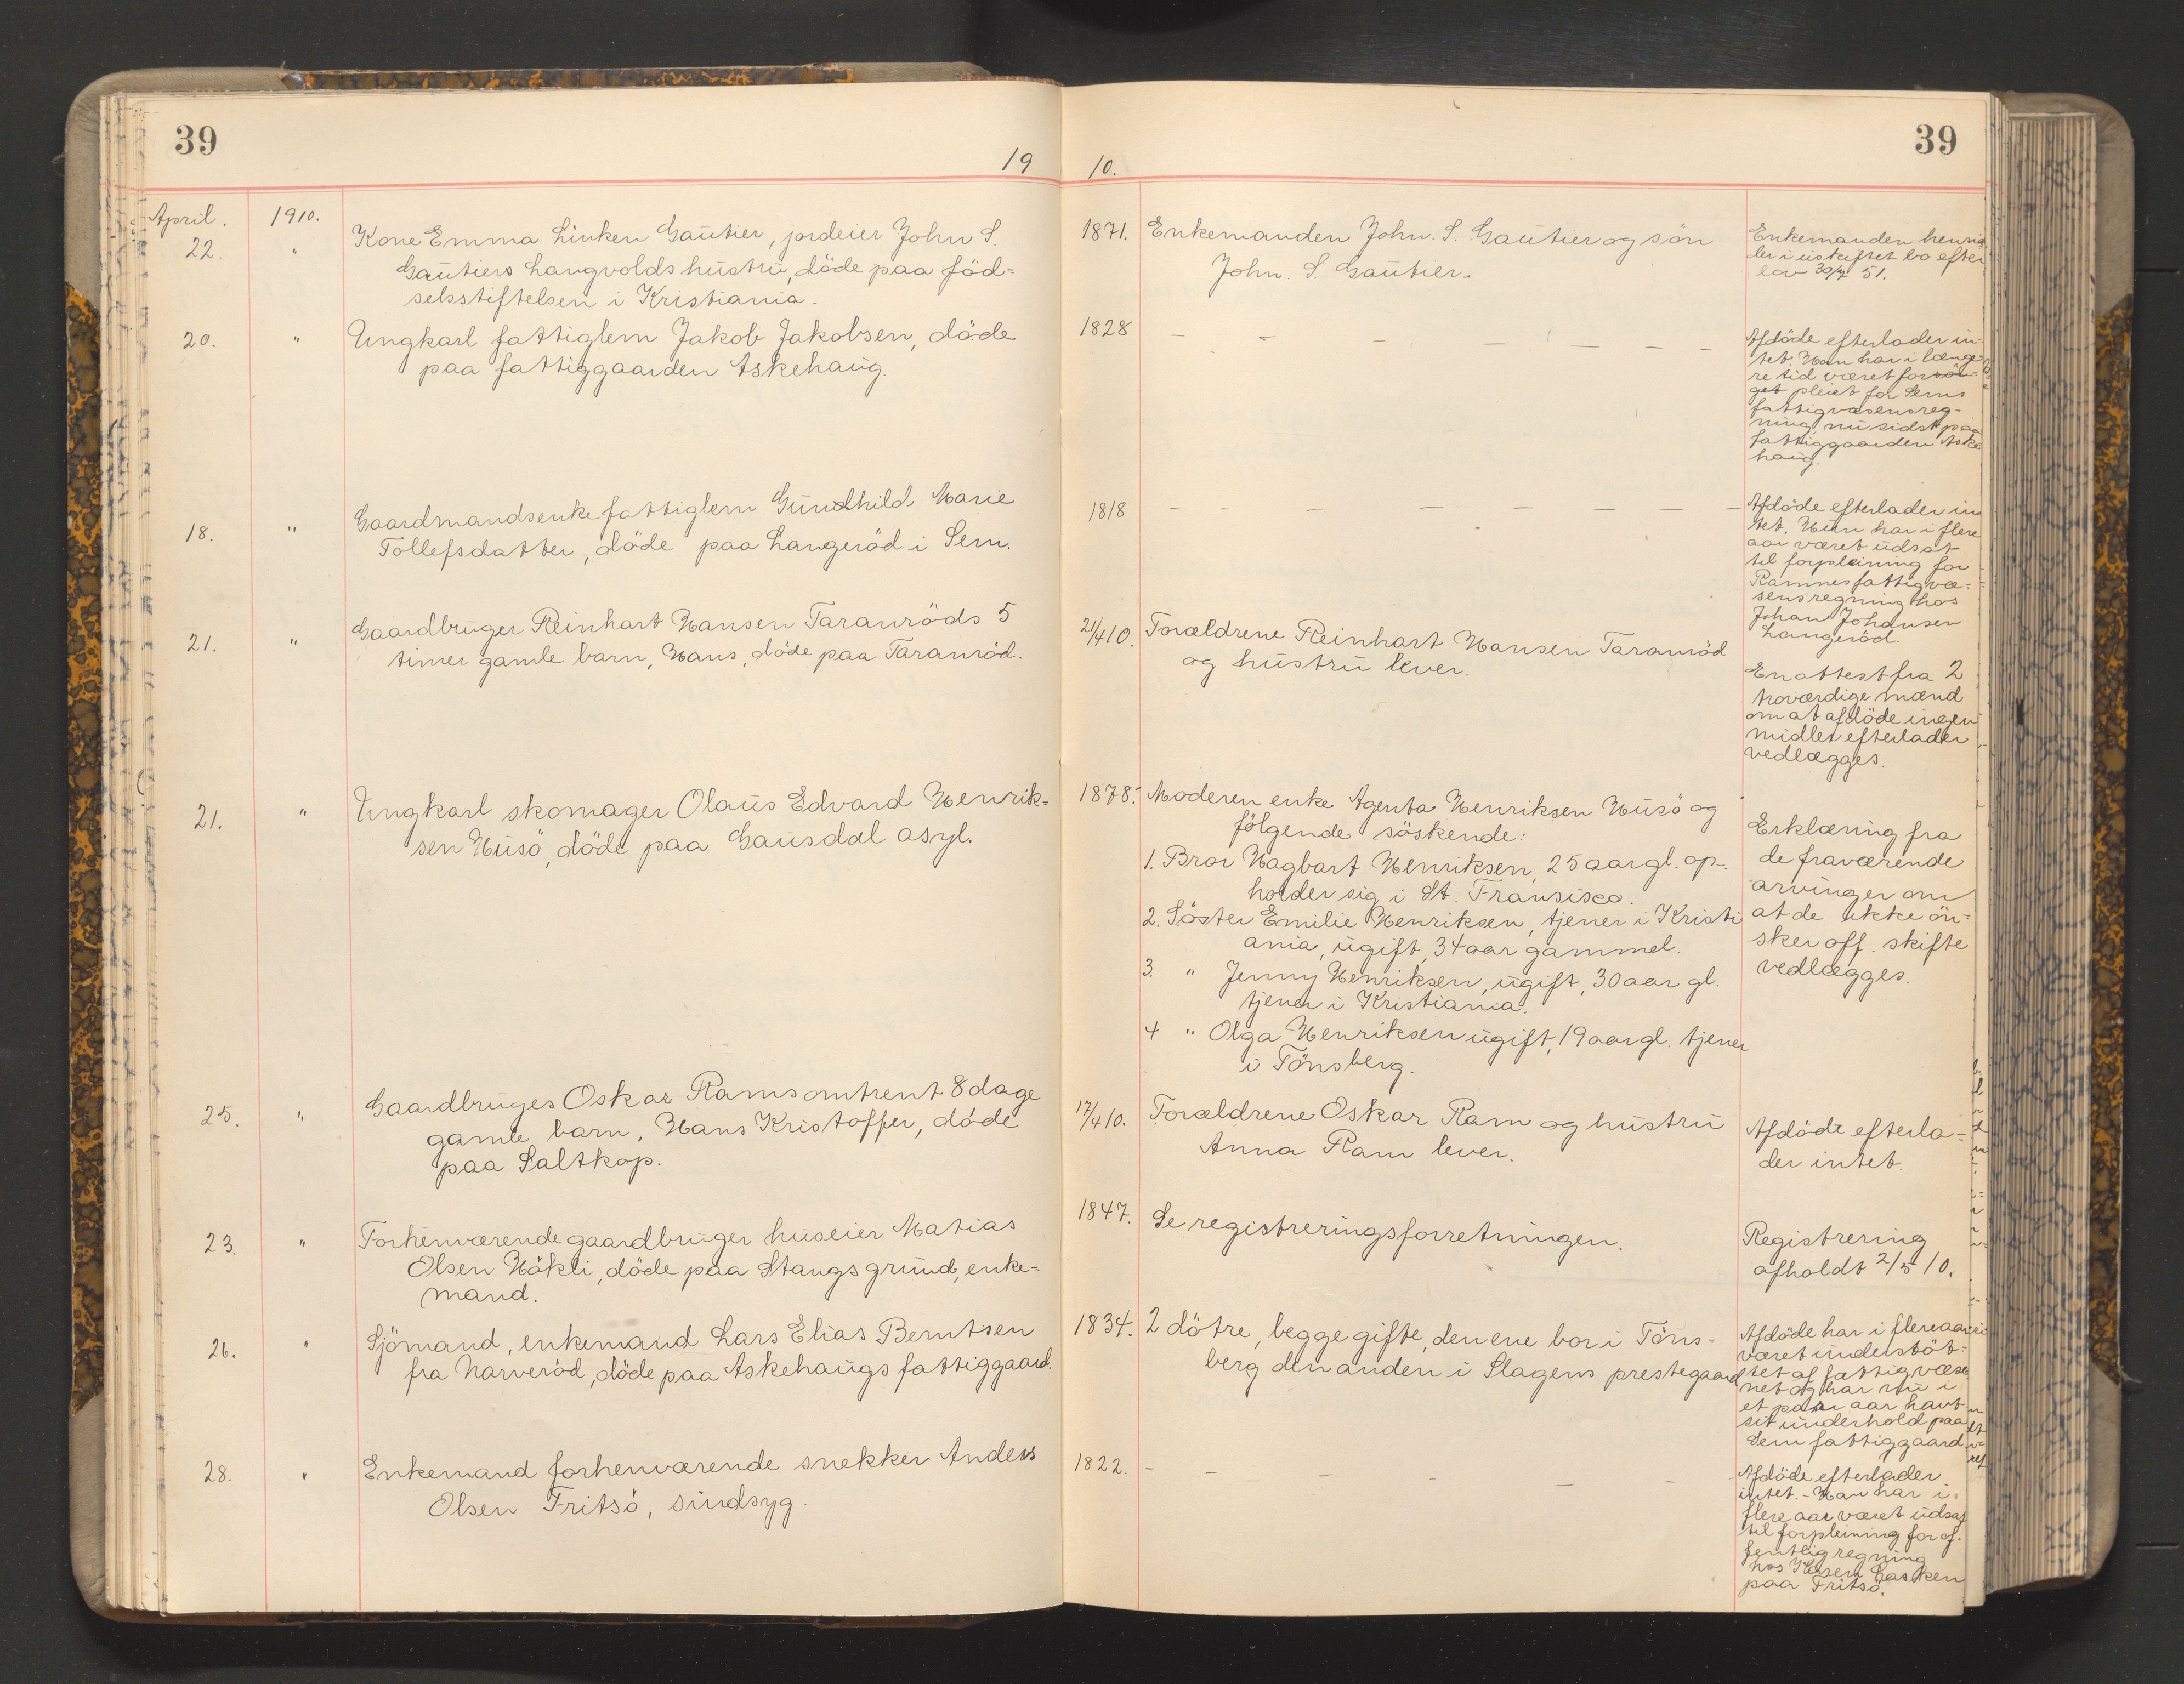 39
39
19
10.
April. 1910.
22. " Kone Emma Linken Gautier, jordeier John S.
Gautiers Langvolds hustru, döde paa föd-
selsstiftelsen i Kristiania.
1871. Enkemanden John. S. Gautier og sön
John. S. Gautier.
Enkemanden hensid
der i uskiftet bo efter
lov 30/7 51.
20. " Ungkarl fattiglem Jakob Jakobsen, döde
paa fattiggaarden Askehaug.
1828 — — — — — — —
Afdöde efterlader in-
tet. Han har i længe
re tid været forsör-
get pleiet for Sems
fattigvæsensreg-
ning nu sidst paa
fattiggaarden Aske
haug.
18. " Gaardmandsenke fattiglem Gundhild Marie
Tollefsdatter, döde paa Langeröd i Sem.
1818 — — — — — — — —
Afdöde efterlader in
tet. Hun har i flere
aar været udsat
til forpleining for
Ramnes fattigvæ-
sens regning hos
Johan Johansen
Langeröd.
21. " Gaardbruger Reinhart Hansen Taranröds 5
timer gamle barn, Hans, döde paa Taranröd.
21/4 10. Forældrene Reinhart Hansen Taranröd
og hustru lever.
En attest fra 2
troværdige mænd
om at afdöde ingen
midler efterlader
vedlægges.
21. " Ungkarl skomager Olaus Edvard Henrik-
sen Husö, döde paa Gausdal asyl.
1878. Moderen enke Agenta Henriksen Husö og
fölgende söskende:
1. Bror Hagbart Henriksen, 25 aar gl. op-
holder sig i St. Fransisco.
2. Söster Emilie Henriksen, tjener i Kristi
ania, ugift, 34 aar gammel.
3. " Jenny Henriksen, ugift, 30 aar gl.
tjener i Kristiania.
4 " Olga Henriksen ugift, 19 aar gl. tjener
i Tönsberg.
Erklæring fra
de fraværende
arvinger om
at de ikke ön-
sker off. skifte
vedlægges.
25. " Gaardbruges Oskar Rams omtrent 8 dage
gamle barn, Hans Kristoffer, döde
paa Saltkop.
17/4 10. Forældrene Oskar Ram og hustru
Anna Ram lever.
Afdöde efterla-
der intet.
23. " Forhenværende gaardbruger huseier Matias
Olsen Hökli, döde paa Stangsgrund, enke-
mand.
1847. Se registreringsforretningen.
Registrering
afholdt 2/5 10.
26. " Sjömand, enkemand Lars Elias Berntsen
fra Narveröd, döde paa Askehaugs fattiggaard.
1834. 2 dötre, begge gifte, den ene bor i Töns-
berg den anden i Slagens prestegaard
Afdöde har i flere aar
været understöt-
tet af fattigvæse
net og har nu i
et par aar havt
sit underhold paa
Sem fattiggaard
28. " Enkemand forhenværende snekker Anders
Olsen Fritsö, sindsyg.
1822. — — — — — — —
Afdöde efterlader
intet. - Han har i
flere aar været udsat
til forpleining for of-
fentlig regning
hos
paa Fritsö.